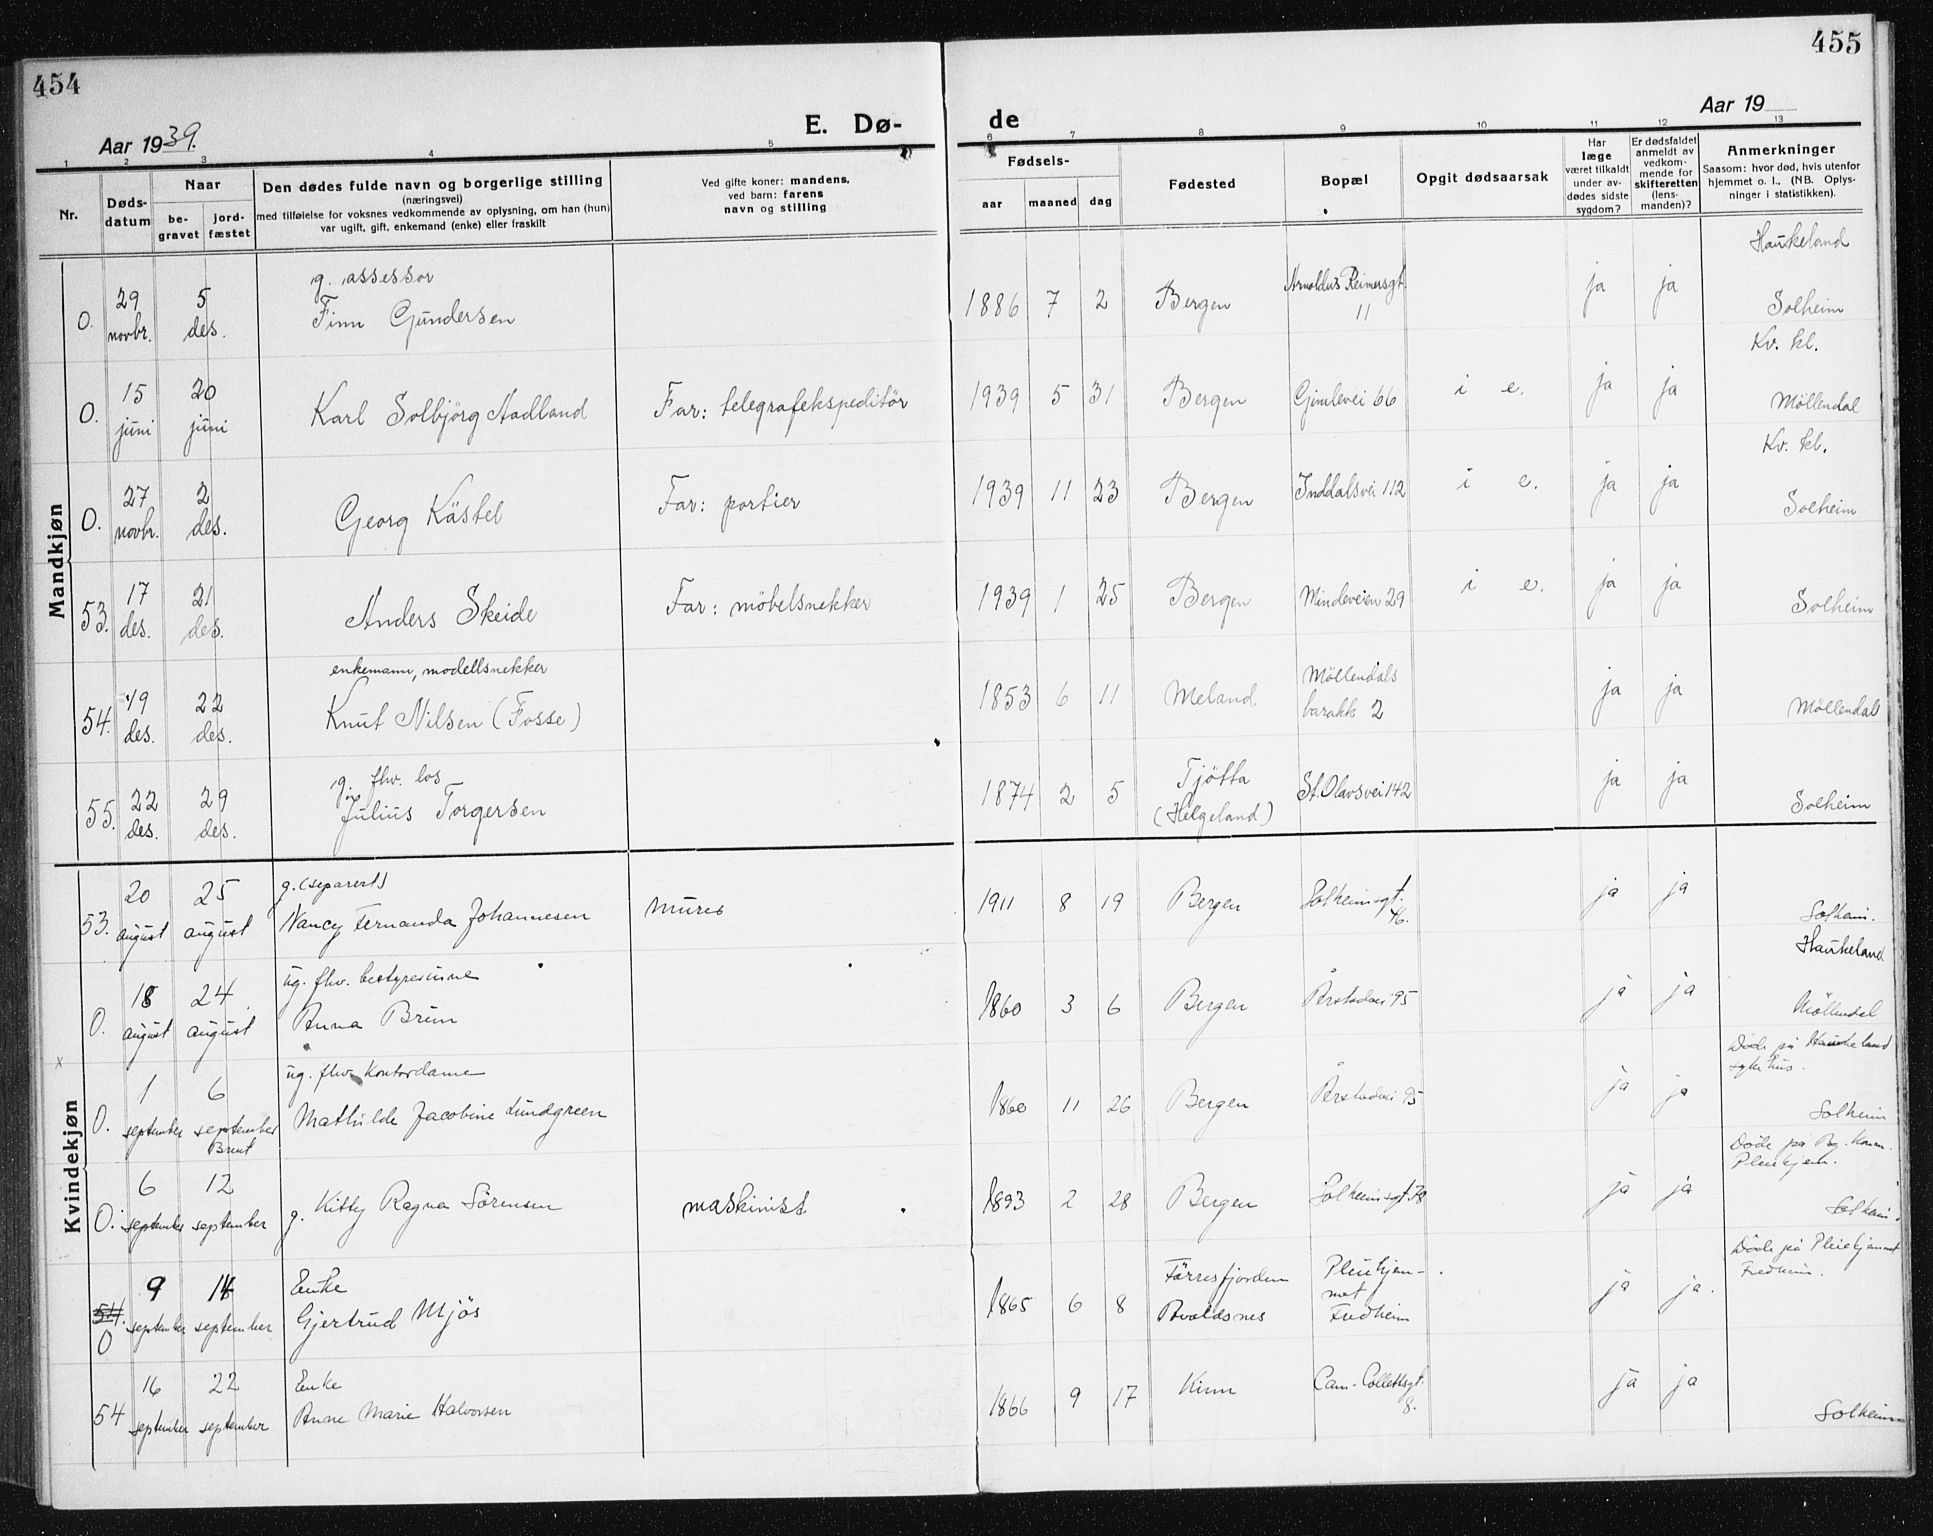 454
455
Aar 1939.
E. Dø-
de
Aar 19
1 2 3 4 5 6 7 8 9 10 11 12 13
Nr.
Døds-
datum
Naar
be-
gravet
jord-
fæstet
Den dødes fulde navn og borgerlige stilling
(næringsvei)
med tilføielse for voksnes vedkommende av oplysning, om han (hun)
var ugift, gift, enkemand (enke) eller fraskilt
Ved gifte koner: mandens,
ved barn: farens
navn og stilling
Fødsels-
aar maaned dag
Fødested
Bopæl
Opgit dødsaarsak
Har
læge
været tilkaldt
under av-
dødes sidste
sygdom?
Er dødsfaldet
anmeldt av
vedkom-
mende for
skifteretten
(lens-
manden)?
Anmerkninger
Saasom: hvor død, hvis utenfor
hjemmet o. l., (NB. Oplys-
ninger i statistikken).
Mandkjøn
Haukeland
g. assessor
O. 29 novbr. 5 des. Finn Gundersen 1886 7 2 Bergen Arnoldus Reimersgt. 11 ja ja Solheim
Kv. kl.
O. 15 juni 20 juni Karl Solbjörg Aadland Far: telegrafekspeditör 1939 5 31 Bergen Gimlevei 66 i e. ja ja Möllendal
Kv. kl.
O. 27 novbr. 2 des. Georg Kästel Far: portier 1939 11 23 Bergen Inddalsvei 112 i e. ja ja Solheim
53. 17 des. 21 des. Anders Skeide Far: möbelsnekker 1939 1 25 Bergen Mindeveien 29 i e. ja ja Solheim
enkemann, modellsnekker
54. 19 des. 22 des. Knut Nilsen (Fosse) 1853 6 11 Meland Möllendals barakk 2 ja ja Möllendal
g. fhv. los
55. 22 des. 29 des. Julius Torgersen 1874 2 5 Tjötta (Helgeland) St. Olavsvei 142 ja ja Solheim
Kvindekjøn
g. (separert)
53. 20 august 25 august Nancy Fernanda Johannesen murer 1911 8 19 Bergen Solheimsgt. 46. ja ja Solheim.
Haukeland
ug. fhv. bestyrerinne
O. 18 august 24 august Anna Brun 1860 3 6 Bergen Årstadvei 95 ja ja Möllendal
Döde på Haukeland
sykehus.
x
ug. fhv. Kontordame
O. 1 september 6 september Brent Mathilde Jacobine Lundgreen 1860 11 26 Bergen Årstadvei 95 ja ja Solheim
Döde på Bg. Komm.
Pleiehjem.
O. 6 september 12 september g. Kitty Ragna Sörensen maskinist 1893 2 28 Bergen Solheimsgt. 78 ja ja Solheim
Döde på Pleiehjemmet
Fredheim.
Enke
54. O 9 september 14 september Gjertrud Mjös 1865 6 8 Förresfjorden Avaldsnes Pleiehjem- met Fredheim ja ja.
Enke
54 16 september 22 september Anne Marie Halvorsen 1866 9 17 Kinn Cam. Collettsgt. 8. ja ja Solheim